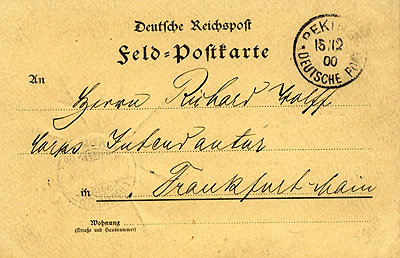 Deutsche Reichspost
Feld-Postkarte
PEKING
15/12
00
DEUTSCHE POST
An
Herrn Richard Wolff
Corps Intendantur
in Frankfurt Main
Wohnung
(Straße und Hausnummer)